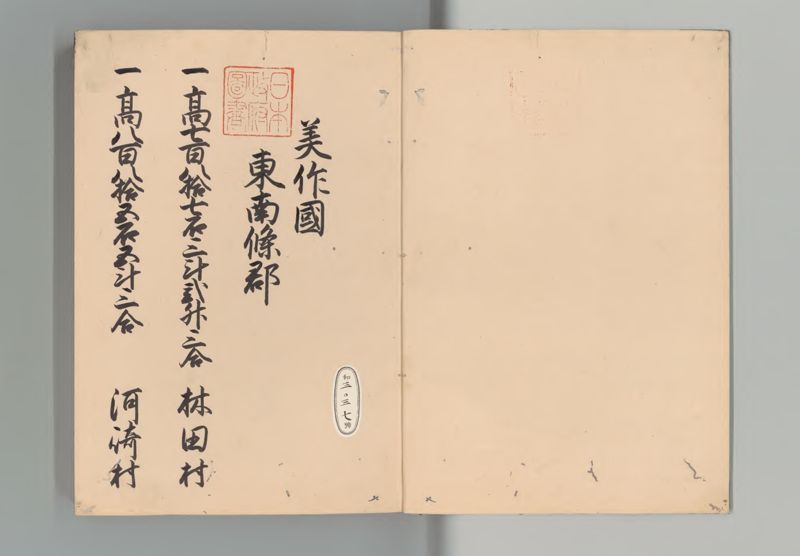 美作國
東南條郡
日本
政府
圖書
一高七百八拾七石二斗弐升二合 林田村
一高八百八拾五石五斗二合 河崎村